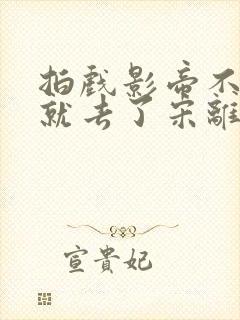 拍戲影帝不
就去了宋離
宣貴妃